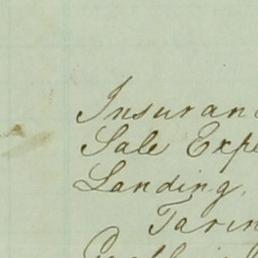 Insuran
Sale Expe
Landing,
Tarin